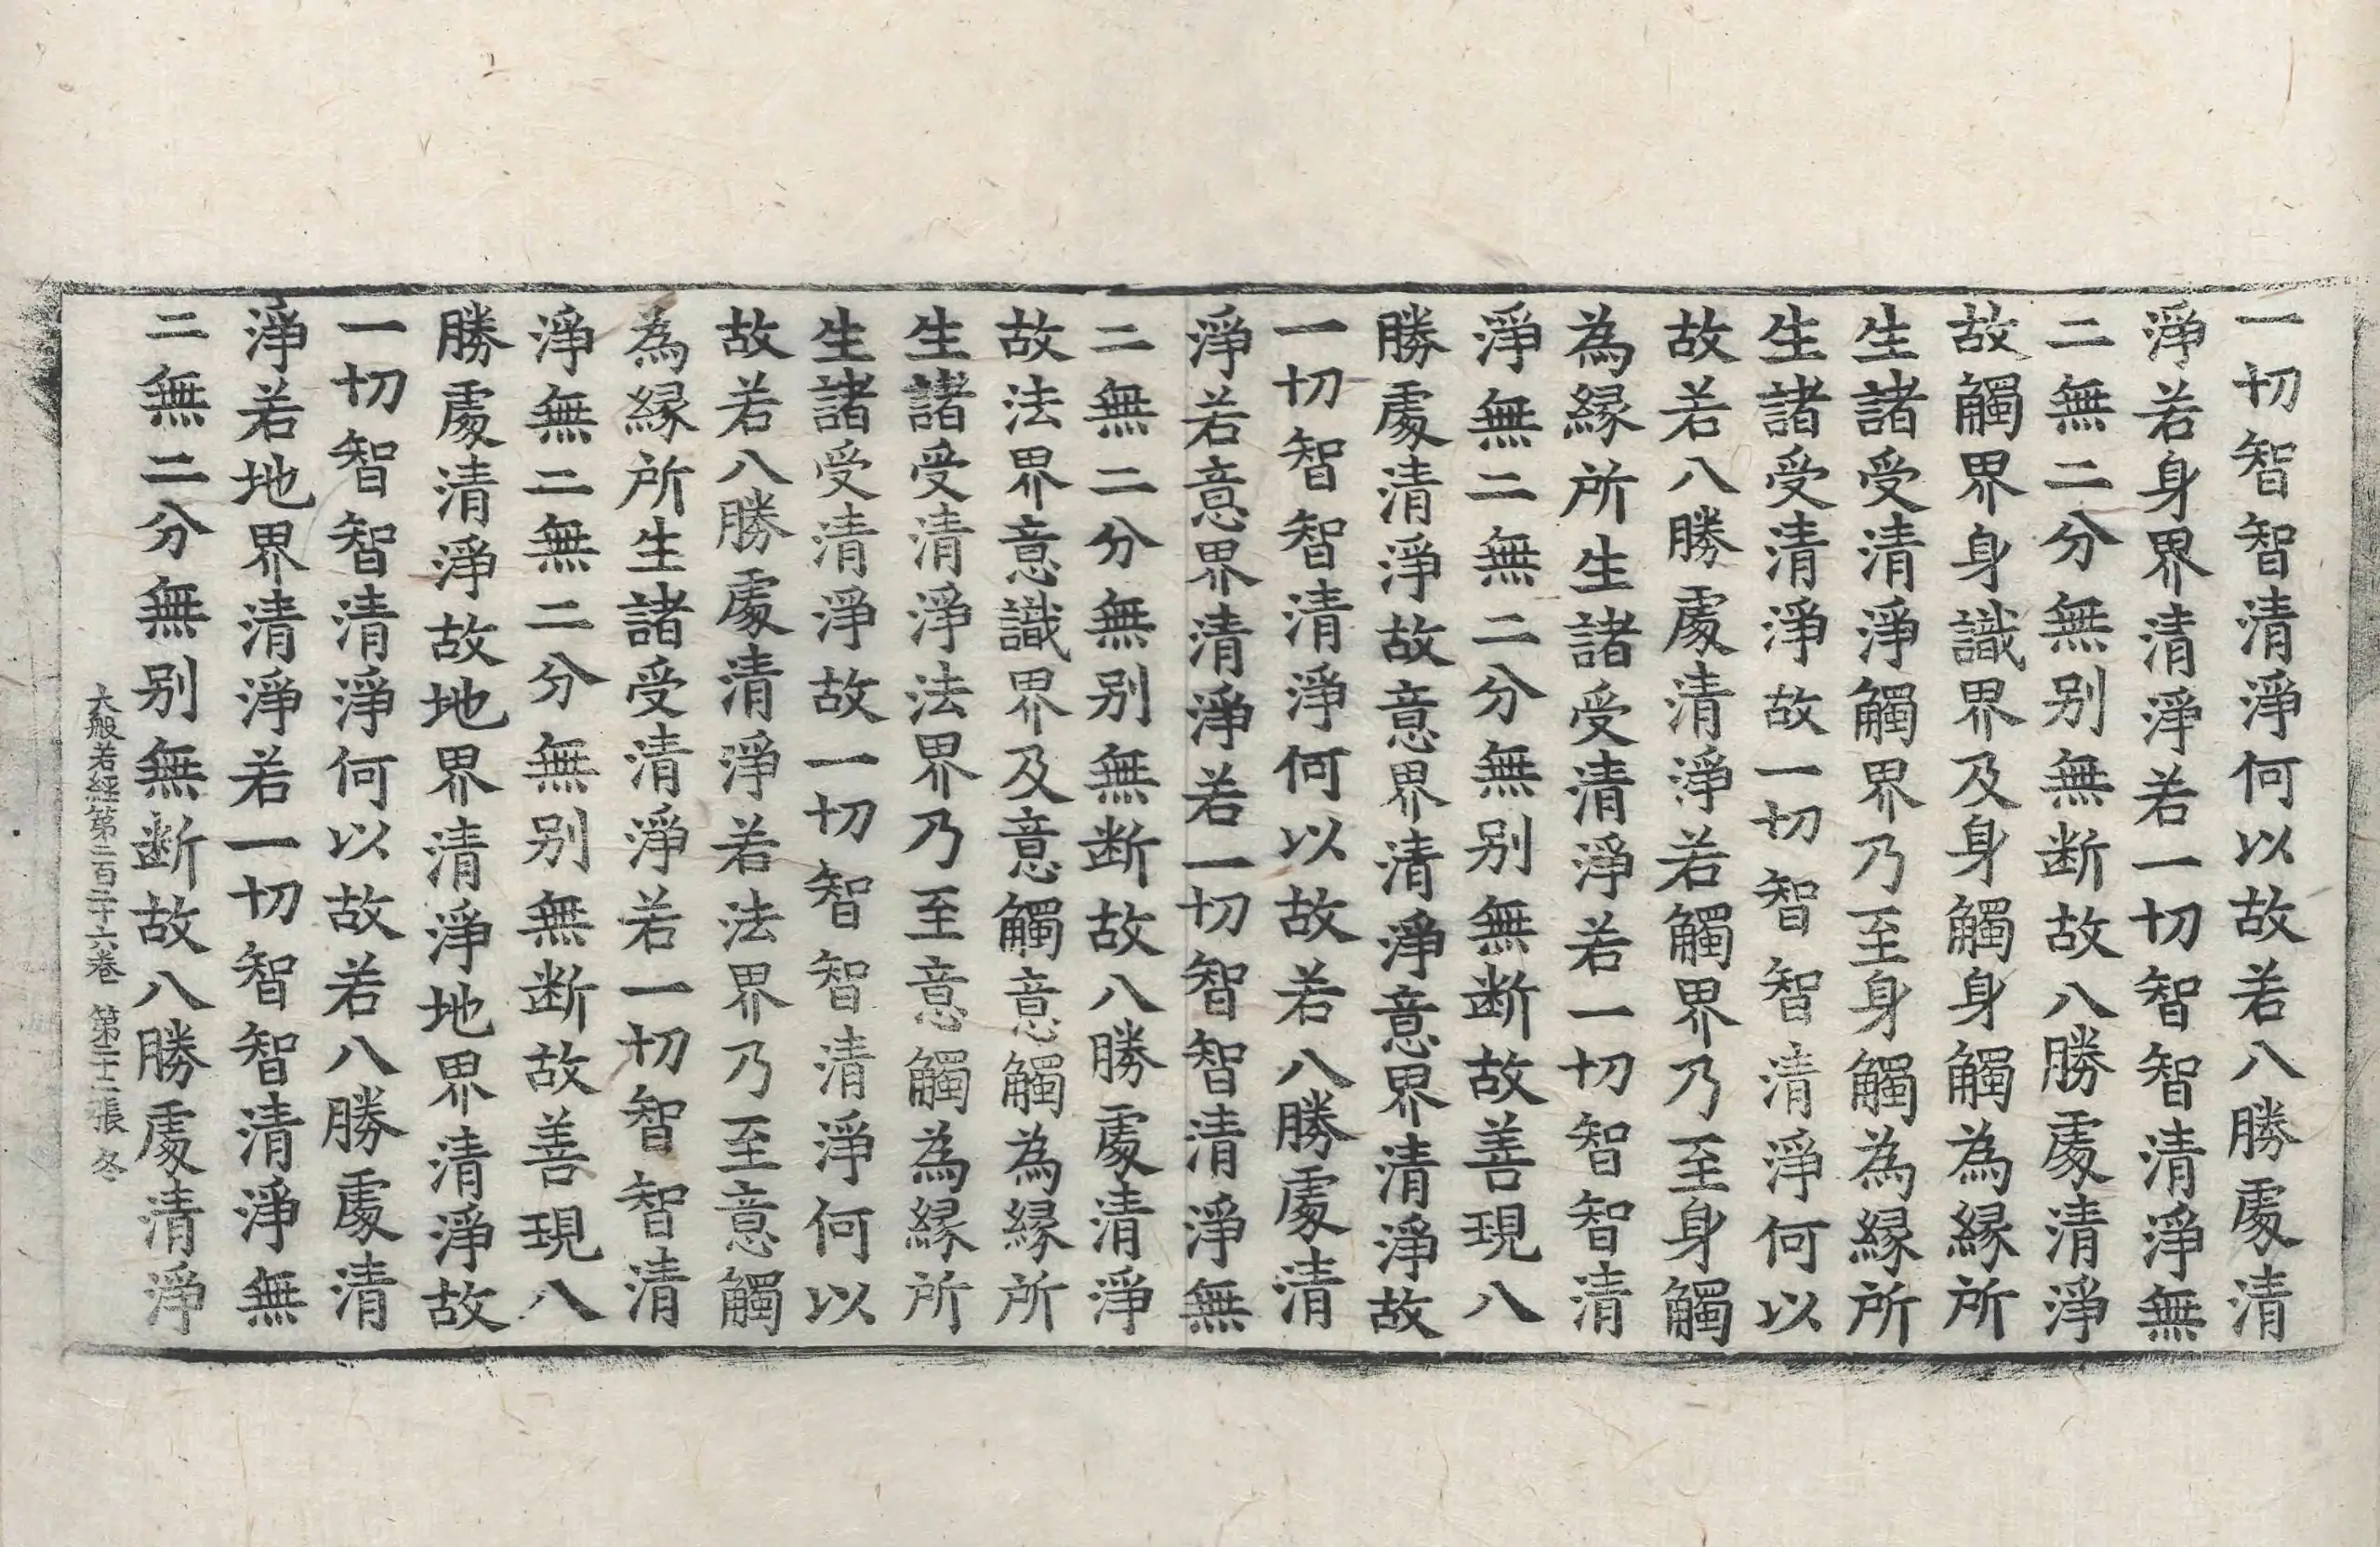 一切智智清淨何以故若八勝處清
淨若身界清淨若一切智智清淨無
二無二分無別無断故八勝處清淨
故觸界身識界及身觸身觸為縁所
生諸受清淨觸界乃至身觸為縁所
生諸受清淨故一切智智清淨何以
故若八勝處清淨若觸界乃至身觸
為縁所生諸受清淨若一切智智清
淨無二無二分無別無断故善現八
勝處清淨故意界清淨意界清淨故
一切智智清淨何以故若八勝處清
淨若意界清淨若一切智智清淨無
二無二分無別無断故八勝處清淨
故法界意識界及意觸意觸為縁所
生諸受清淨法界乃至意觸為縁所
生諸受清淨故一切智智清淨何以
故若八勝處清淨若法界乃至意觸
為縁所生諸受清淨若一切智智清
淨無二無二分無別無断故善現八
勝處清淨故地界清淨地界清淨故
一切智智清淨何以故若八勝處清
淨若地界清淨若一切智智清淨無
二無二分無別無断故八勝處清淨
大般若經第二百二十六卷 第二十二張 冬